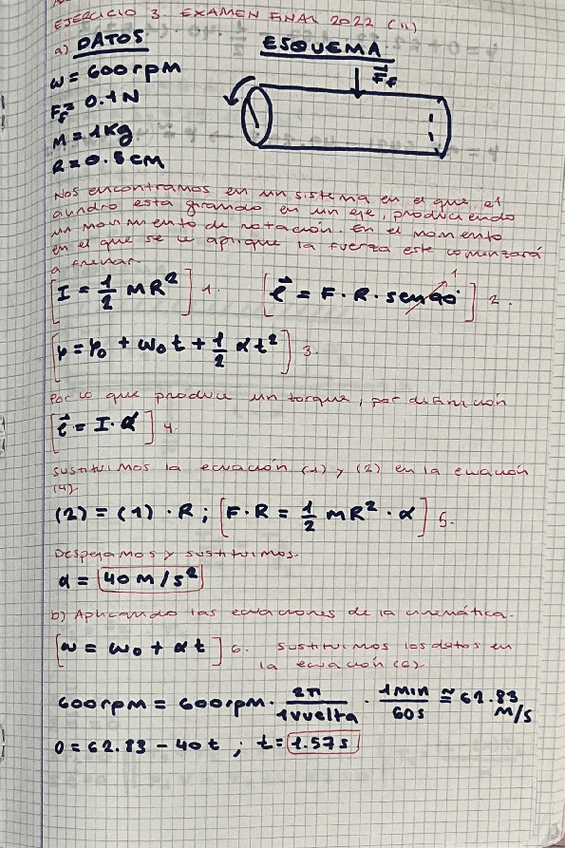 EJERCICIO 3. EXAMEN FINAL 2022 (II)
a) DATOS
ESQUEMA
ω = 600rpm
F_f = 0.1N
M = 1Kg
R = 0.5cm
F_f
Nos encontramos en un sistema en el que el
cilindro esta girando en un eje, produciendo
un movimiento de rotación. En el momento
en el que se le aplique la fuerza este comenzará
a frenar.
[I = 1/2 MR²] 1. [τ = F · R · sen90 1] 2.
[φ = φ₀ + ω₀t + 1/2 αt²] 3.
Por lo que produce un torque, por definición
[τ = I · α] 4.
Sustituimos la ecuación (1) y (2) en la ecuación
(4).
(2) = (1) · R ; [F · R = 1/2 MR² · α] 5.
Despejamos y sustituimos.
α = 40 M/s²
b) Aplicando las ecuaciones de la cinemática.
[ω = ω₀ + αt] 6. Sustituimos los datos en
la ecuación (6).
600rpm = 600rpm · 2π/1vuelta · 1min/60s ≅ 62.83 M/s
0 = 62.83 - 40t ; t = 1.57s